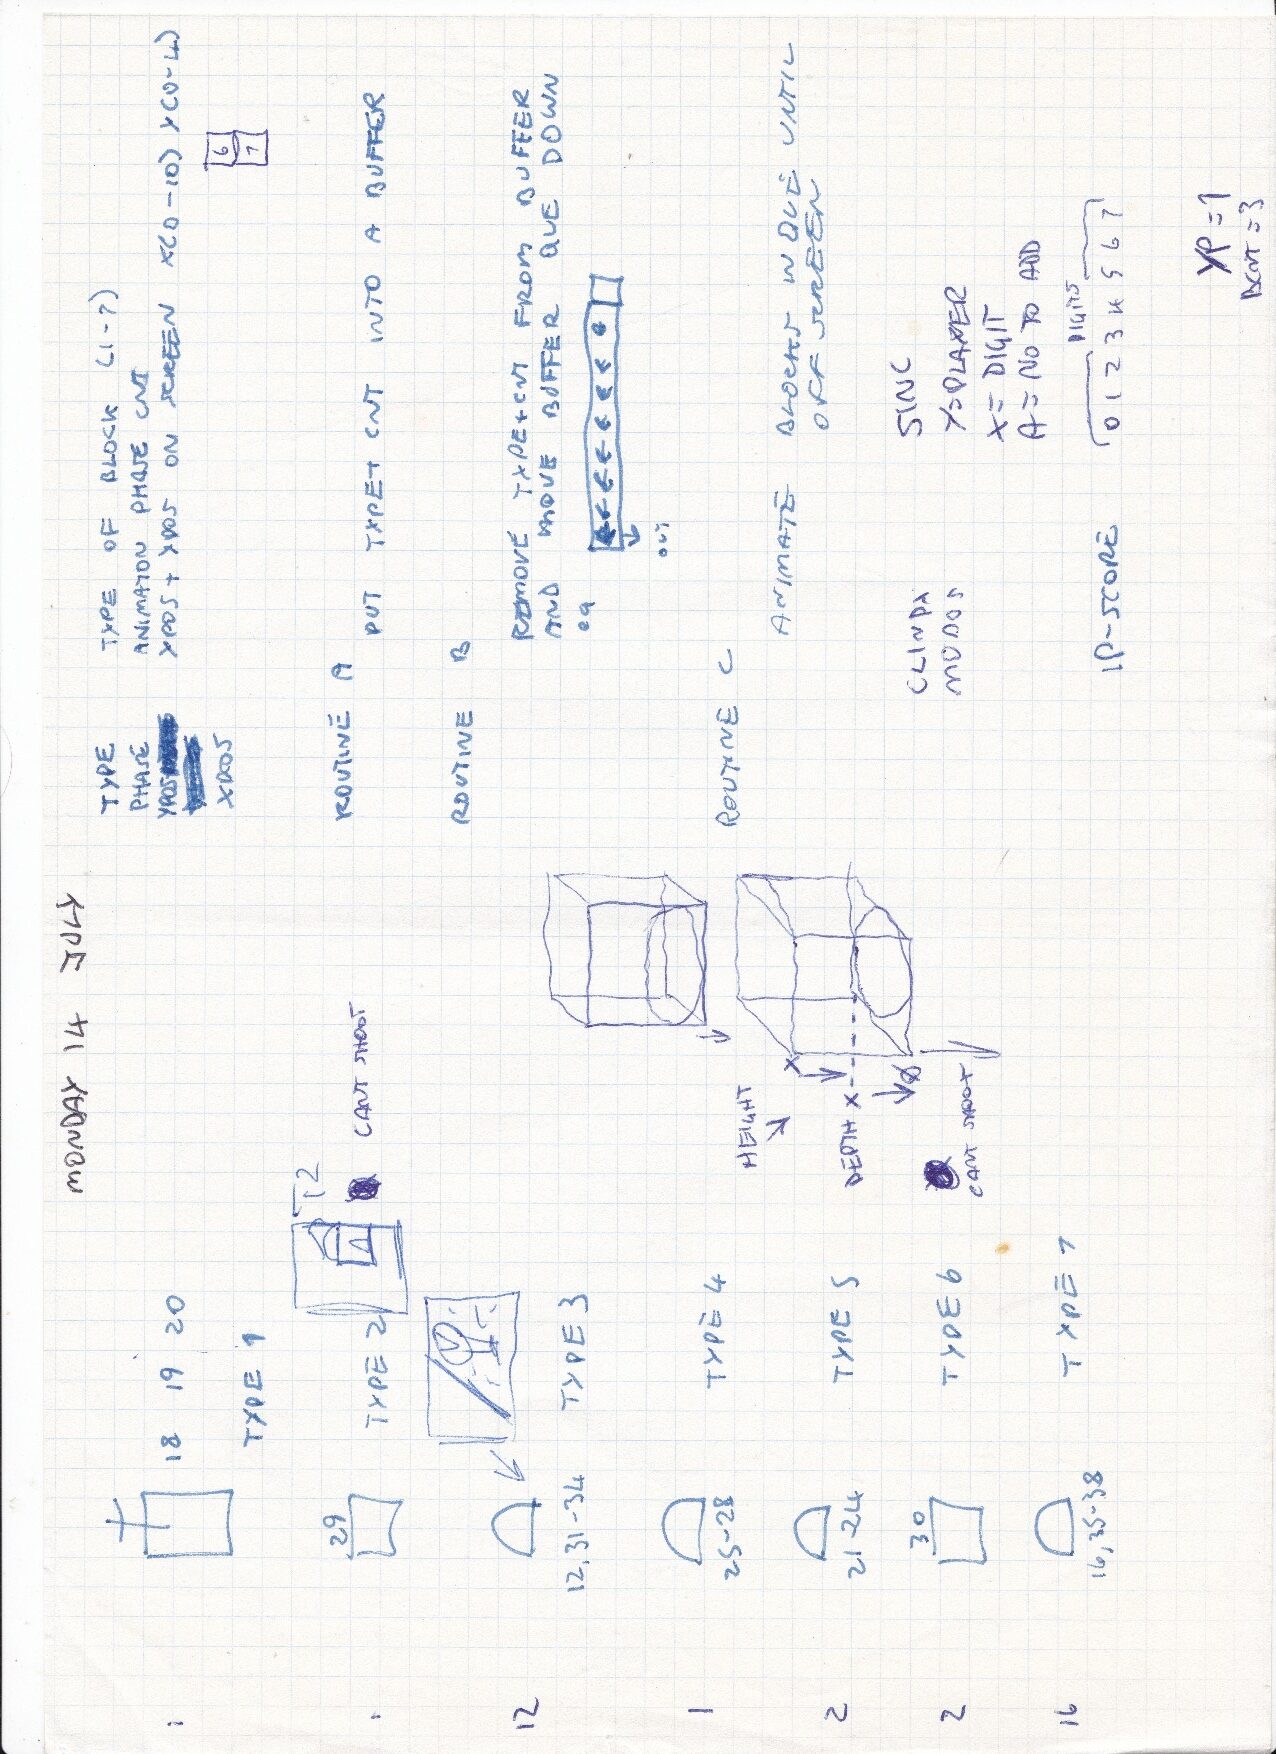 MONDAY 14 JULY
1
18 19 20
TYPE 1
1
29
TYPE 2
T2
CANT SHOOT
12
12,31-34
TYPE 3
1
25-28
TYPE 4
2
21-24
TYPE 5
2
30
TYPE 6
16
16,35-38
TYPE 7
HEIGHT
X
DEPTH X
Ø
CANT SHOOT
TYPE TYPE OF BLOCK (1-7)
PHASE ANIMATION PHASE CNT
YPOS XPOS + YPOS ON SCREEN X(0-10) Y(0-4)
XPOS
6
7
ROUTINE A PUT TYPE+ CNT INTO A BUFFER
ROUTINE B REMOVE TYPE+CNT FROM BUFFER
AND MOVE BUFFER QUE DOWN
eg
OUT
ROUTINE C ANIMATE BLOCKS IN QUE UNTIL
OFF SCREEN
SINC
Y=PLAYER
X=DIGIT
A=NO TO ADD
DIGITS
1P-SCORE 0 1 2 3 4 5 6 7
YP=1
BCNT=3